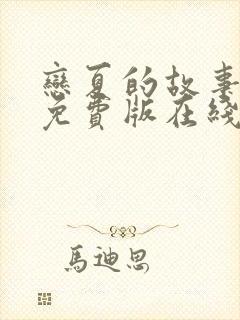 戀夏的故事
免費版在綫
馬迪思